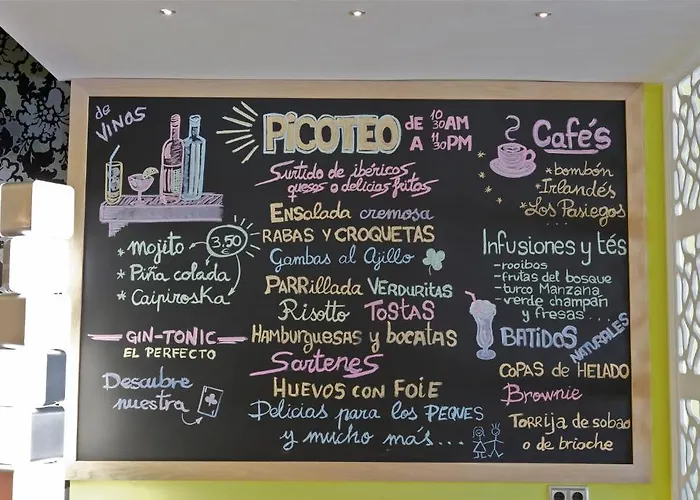 de
VINOS
* mojito
* Piña colada
* Caipiroska
3,50
€
GIN-TONIC
EL PERFECTO
Descubre
nuestra
PICOTEO DE 10 30 AM
A 11 30 PM
Surtido de ibéricos
quesos o delicias fritas
Ensalada cremosa
RABAS Y CROQUETAS
Gambas al Ajillo
PARRillada Verduritas
Risotto TOSTAS
Hamburguesas y bocatas
Sartenes
HUEVOS CON FOIE
Delicias para los PEQUES
y mucho más...
Cafés
* bombón
* Irlandés
* Los Pasiegos
Infusiones y tés
- rooibos
- frutas del bosque
- turco Manzana
- verde champán
y fresas...
BATIDOS
NATURALES
COPAS de HELADO
Brownie
Torrija de sobao
o de brioche